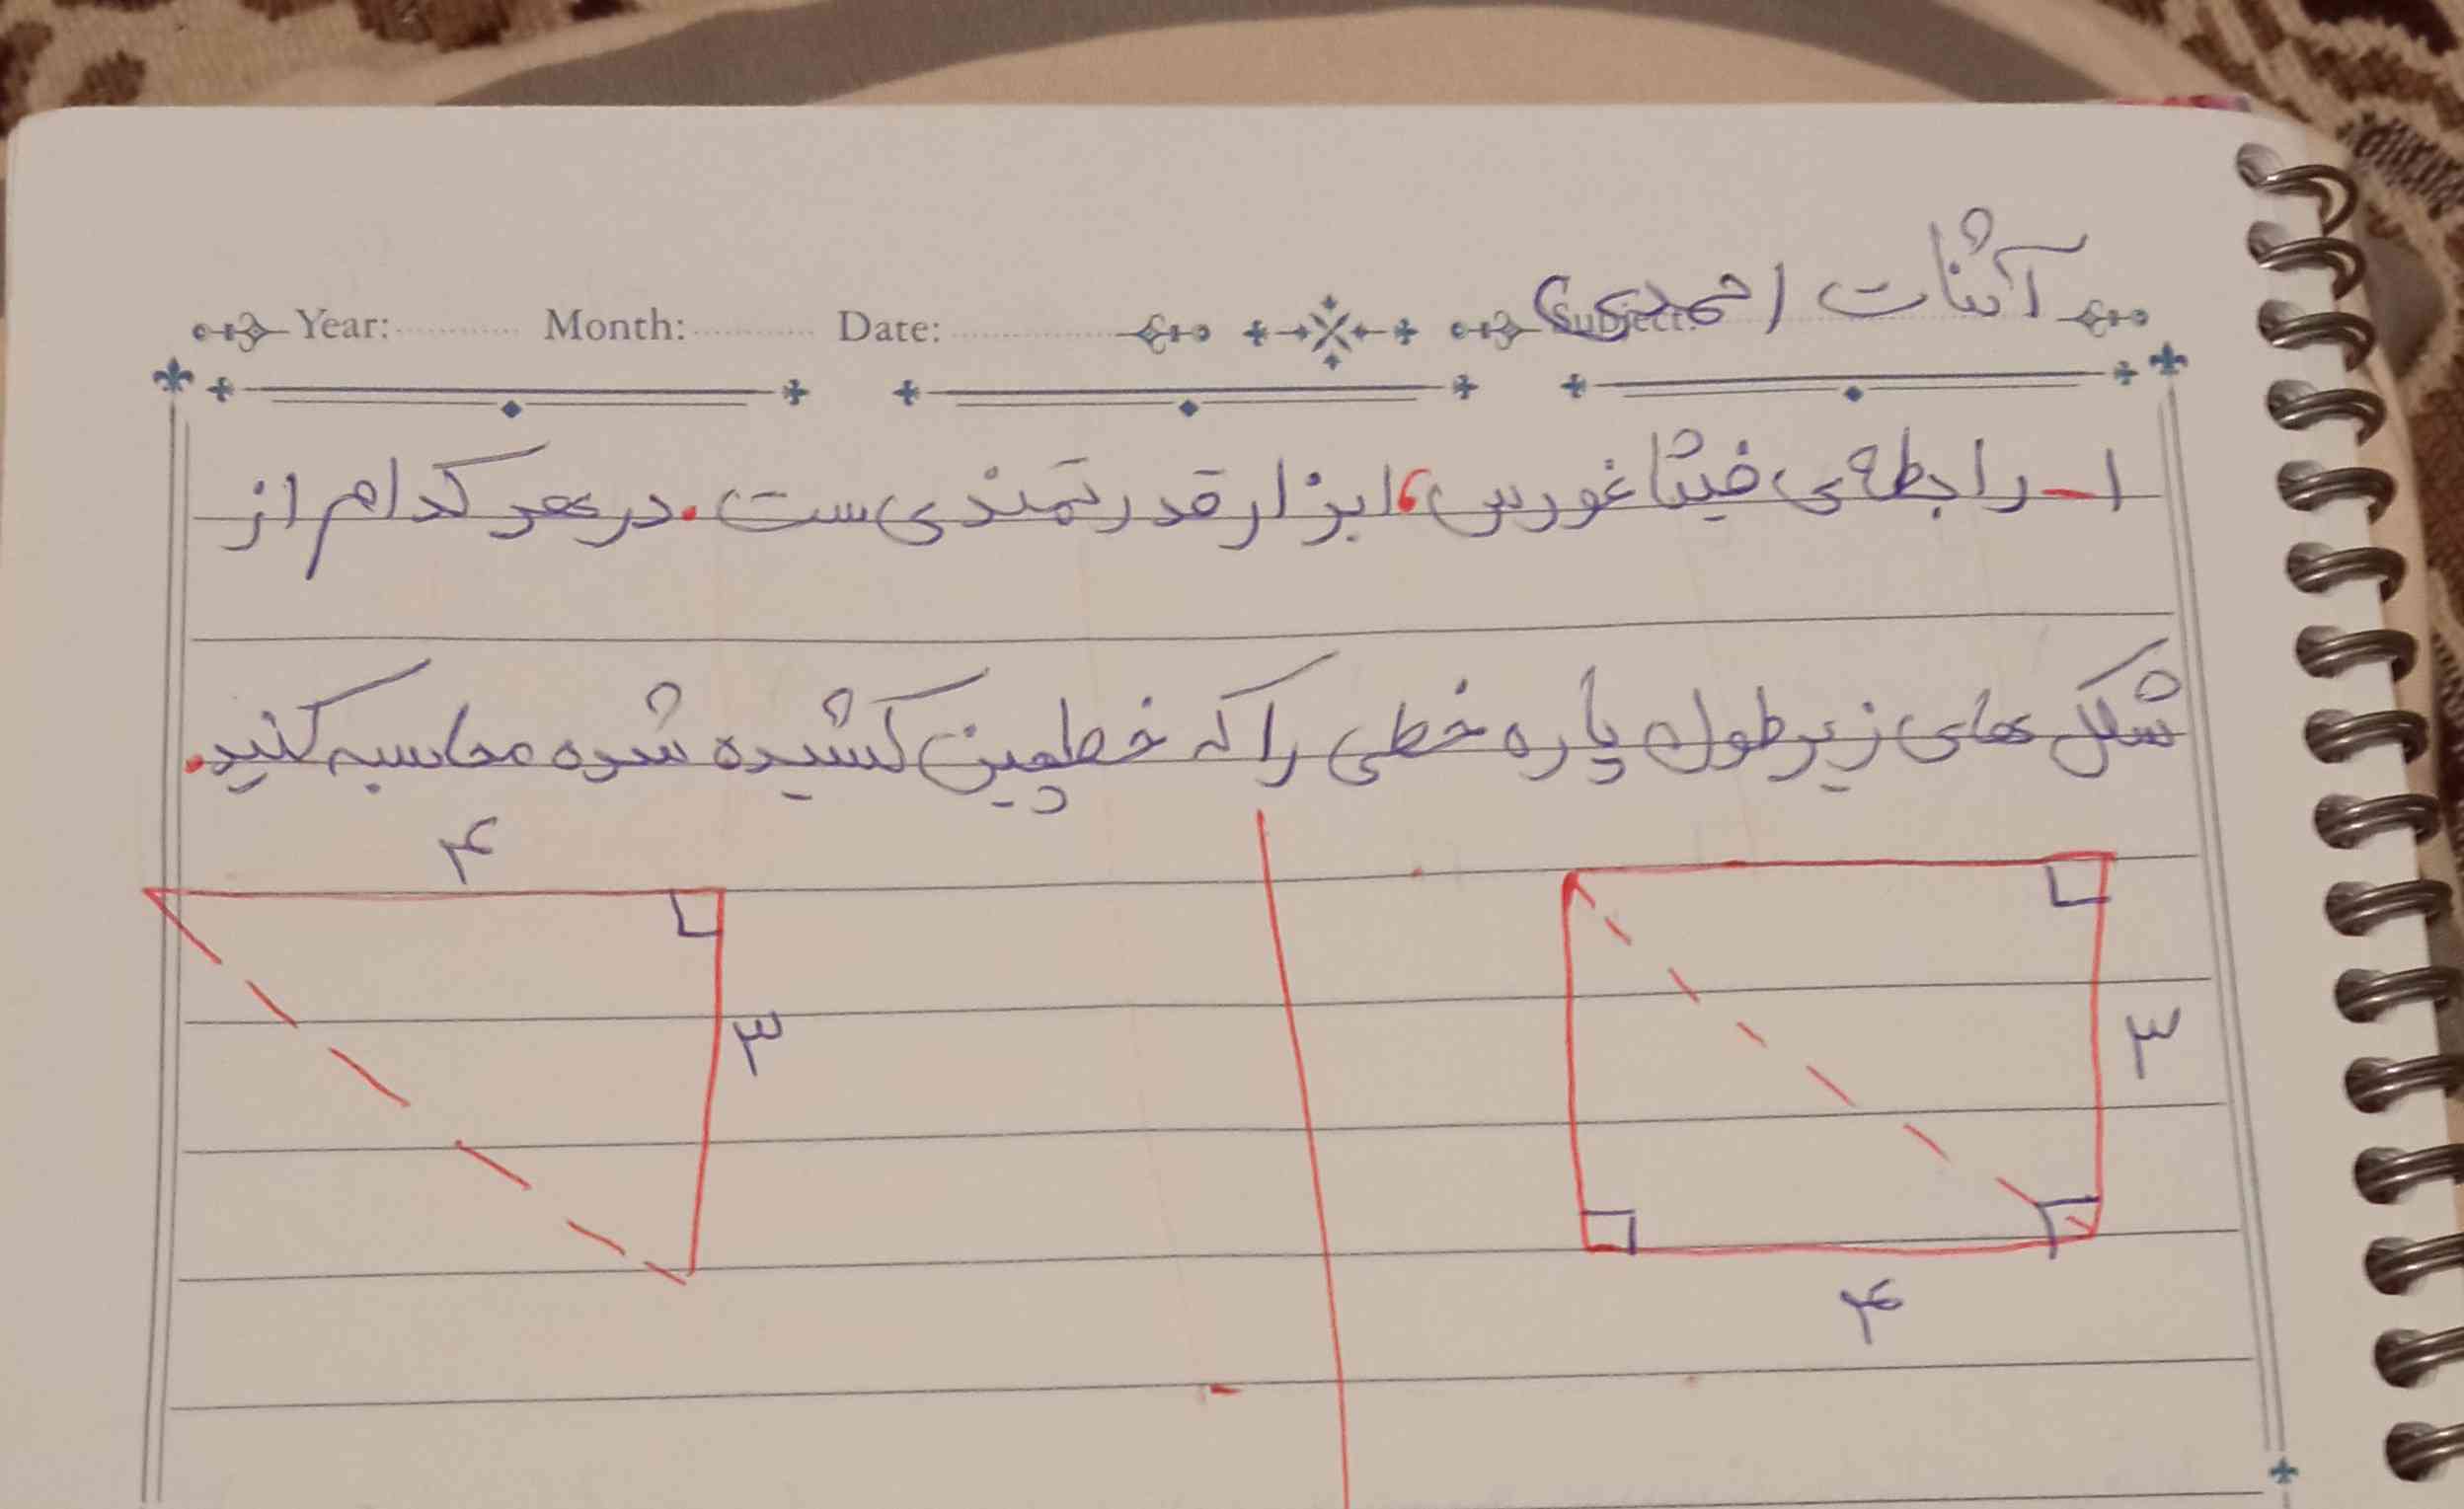 آثنات احمدی
Year: Month: Date: Subject:
۱- رابطه‌ی فیثاغورس، ابزار قدرتمندی ست. در هر کدام از
شکل های زیر طول پاره خطی را که خطچین کشیده شده محاسبه کنید.
۴
۳
۳
۴